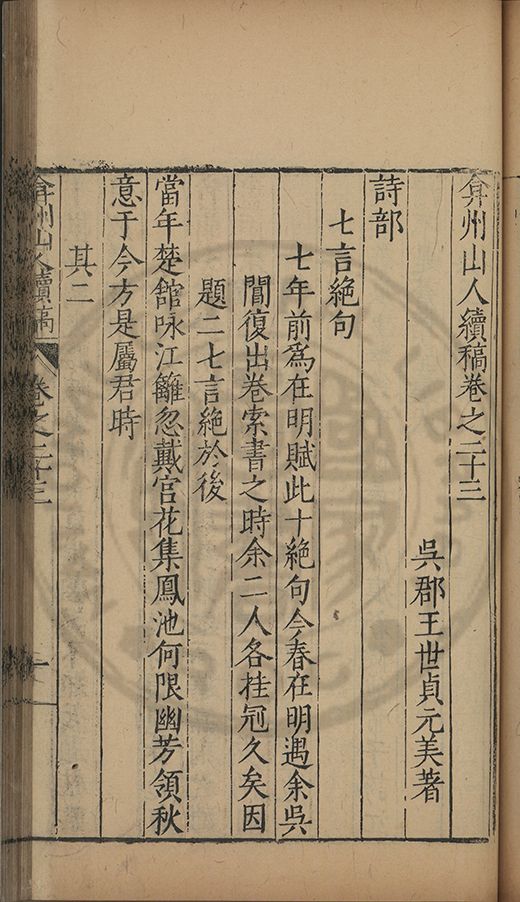 弇州山人續稿卷之二十三
吳郡王世貞元美著
詩部
七言絕句
七年前爲在明賦此十絕句今春在明遇余吳
閶復出卷索書之時余二人各挂冠久矣因
題二七言絕於後
當年楚館咏江蘺忽戴宮花集鳳池何限幽芳領秋
意于今方是屬君時
其二
弇州山人續稿
卷之二十三
一